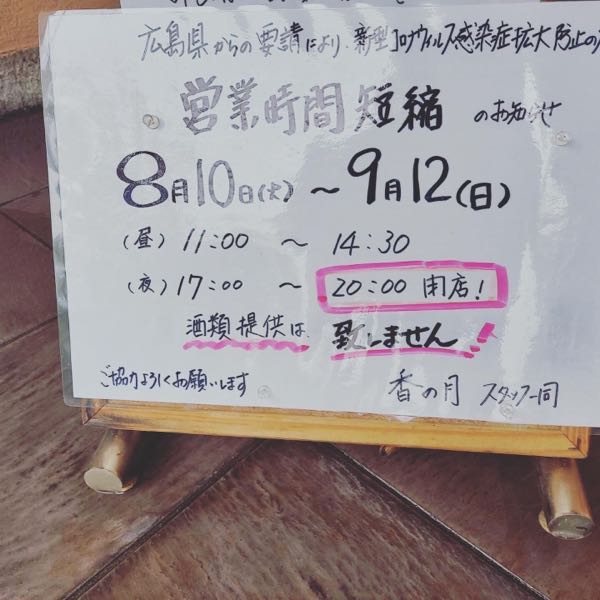 広島県からの要請により、新型コロナウィルス感染症拡大防止の
営業時間短縮のお知らせ
8月10日(火)～9月12(日)
(昼) 11:00 ～ 14:30
(夜) 17:00 ～ 20:00 閉店!
酒類提供は、致しません!!
ご協力よろしくお願いします
香の月 スタッフ一同